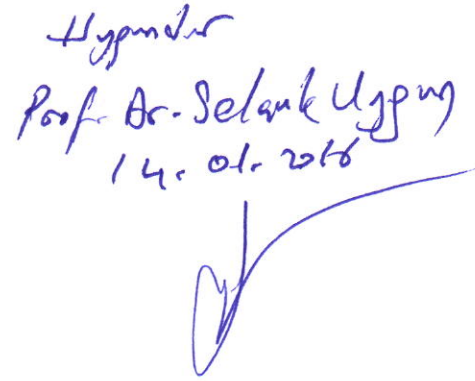 Uygundur
Prof. Dr. Selçuk Uygun
14.01.2016